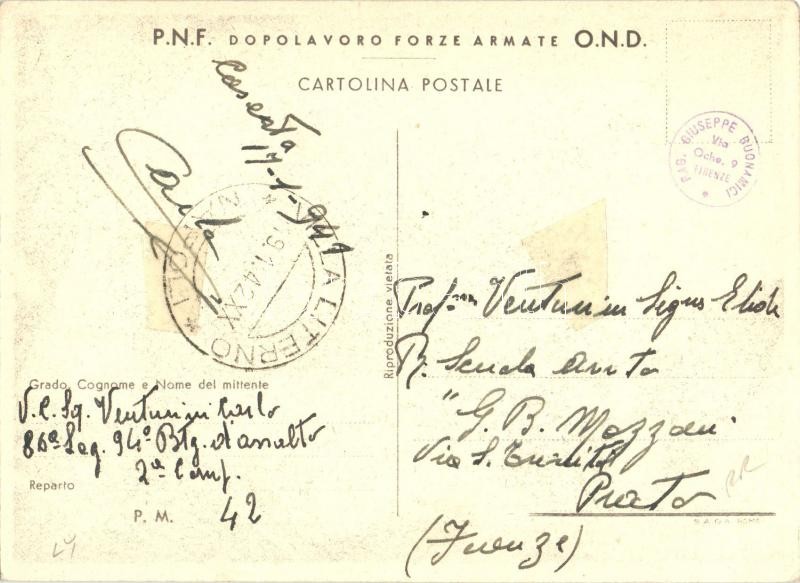 P.N.F. DOPOLAVORO FORZE ARMATE O.N.D.
CARTOLINA POSTALE
Caserta
17-1-941
Carlo
VILLA LITERNO * NAPOLI *
19.1.42 XX
PAG. GIUSEPPE BUONAMICI *
Via
Oche, 9
FIRENZE
Riproduzione vietata
Prof. Venturini
R. Scuola
"G. B. Mazzoni
Via S.
Prato
(Firenze)
Grado, Cognome e Nome del mittente
V.C.Sq. Venturini Carlo
86ª Leg. 94º Btg. d'assalto
2ª Comp.
Reparto
P. M. 42
RR
S.A.G.A. ROMA